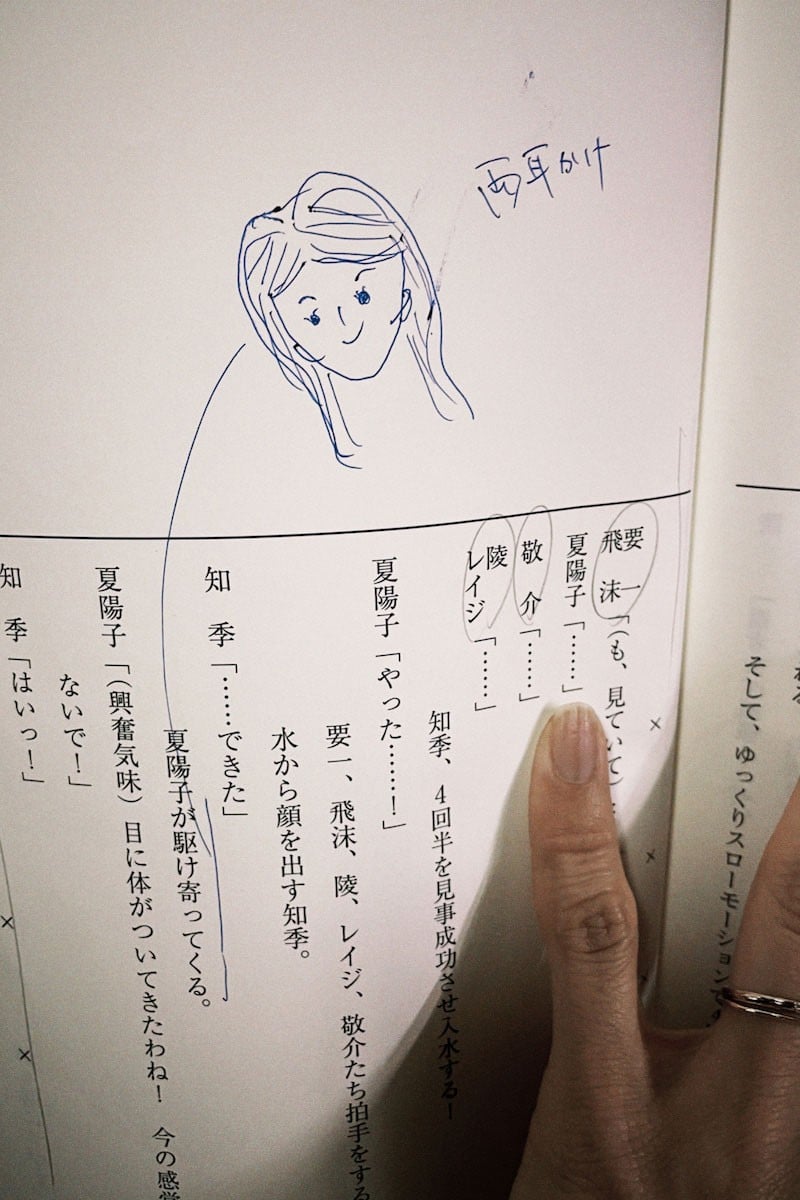 両耳かけ
そして、ゆっくりスローモーションで
要一
飛沫「（も、見ていて）
夏陽子「……」
敬介「……」
陵
レイジ「……」
知季、4回半を見事成功させ入水する！
夏陽子「やった……！」
要一、飛沫、陵、レイジ、敬介たち拍手をする
水から顔を出す知季。
知季「……できた」
夏陽子が駆け寄ってくる。
夏陽子「（興奮気味）目に体がついてきたわね！　今の感覚
ないで！」
知季「はいっ！」